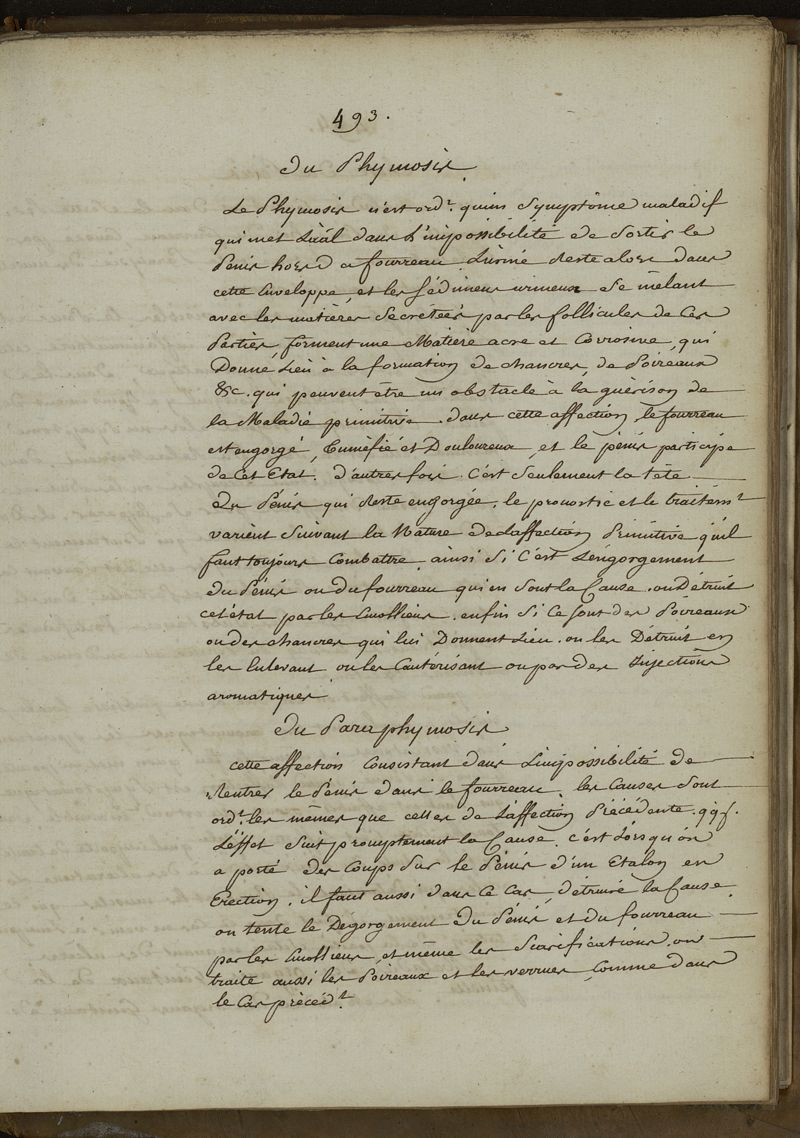 493.
Du Phymosis.
Le Phymosis n'est ord.t qu'un Symptôme maladif
qui met L'ãal dans l'impossibilité de Sortir le
Pénis hors d fourreau. L'urine Reste alors dans
cette Enveloppe, et les Sédimens urineux Se mêlant
avec les matières Secretées par les follicules de Ces
Parties, forment une Matière acre et Corrosive, qui
Donne Lieu à la formation de chancres, de Poireaux
&c. qui peuvent être un obstacle à la guérison de
la Maladie primitive. dans cette affection, le fourreau
est engorgé, Tuméfié et Douloureux, et le pénis participe
de Cet Etat. d'autres fois. C'est Seulement la tête
du Pénis qui Reste engorgée. le pronostic et le traitem.t
varient Suivant la Nature de l'affection Primitive qu'il
faut toujours Combattre. ainsi Si C'est L'engorgement
du Pénis ou du fourreau qui en Sont la Cause. on Détruit
cet état par les Emolliens. enfin Si Ce Sont des Poireaux
ou des chancres qui lui Donnent Lieu. on les Détruit en
les Enlevant ou les Cautérisant ou par des Injections
aromatiques.
Du Paraphymosis
cette affection Consistant dans L'impossibilité de
Rentrer le Pénis dans le fourreau. les Causes Sont
ord.t les mêmes que celles de L'affection Précédente. qqf.
L'effet Suit promptement la Cause. c'est Lorsqu'on
a porté des Coups Sur le Pénis d'un Etalon en
Erection. il faut aussi dans Ce Cas, détruire la Cause.
on tente le Dégorgement du Pénis et du fourreau
par les Emolliens, et même les Scarifications. on
traite aussi les Poireaux et les verrues, Comme dans
le Cas précéd.t